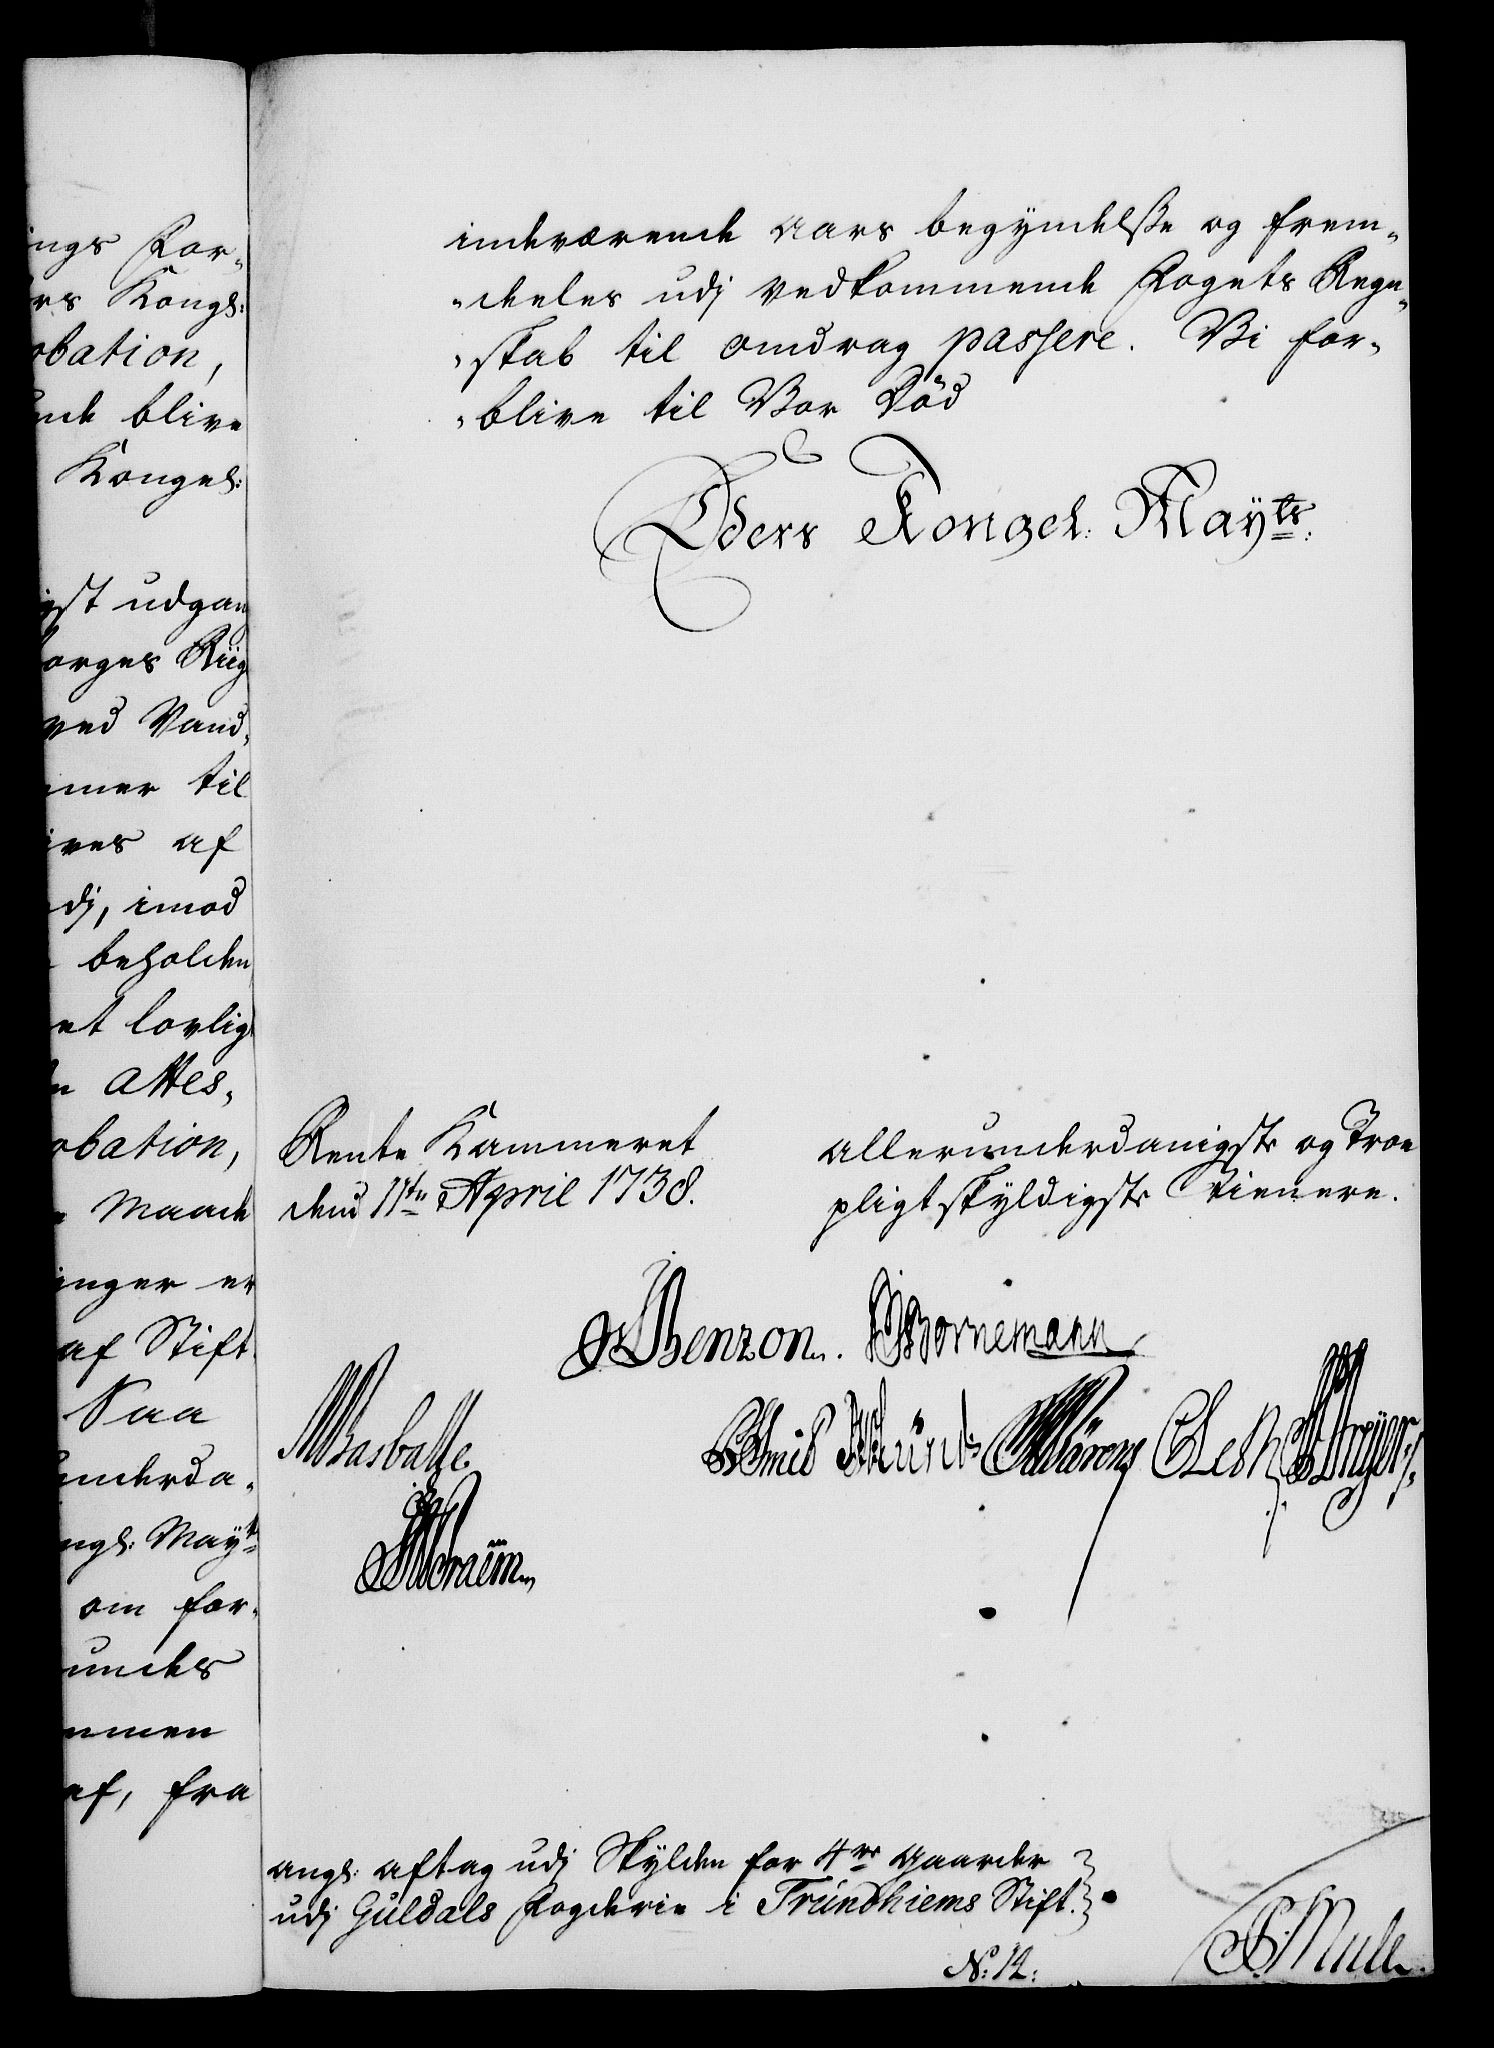 ings For-
rs Kongl:
obation,
nde blive
Kongel:
igst udgan
orges Riig
ved Vand-
mer til
ives af
dj, imod
beholden
et lovlig
n Attes-
obation,
Maade
inger er
af Stift
Saa
underda-
ngl: Mayts
om for-
undes
mmen
af, fra
indeværende Aars begyndelsse og frem-
-deeles udj vedkommende Fogets Regn-
-skab til Omdrag passere. Vi for-
-blive til Vor Död
Eders Kongel: Mayts:
Rente Kammeret
dend 11te April 1738.
allerunderdanigste og Troe
pligtskyldigste Tienere.
Benzon. Bornemann
Basballe. Smid Wärens Lesk Meyer
Braëm
angl: aftag udj Skylden for 4re Gaarder
udj Guldals Fogderie i Trundhiems Stift.
No: 12:
Mull